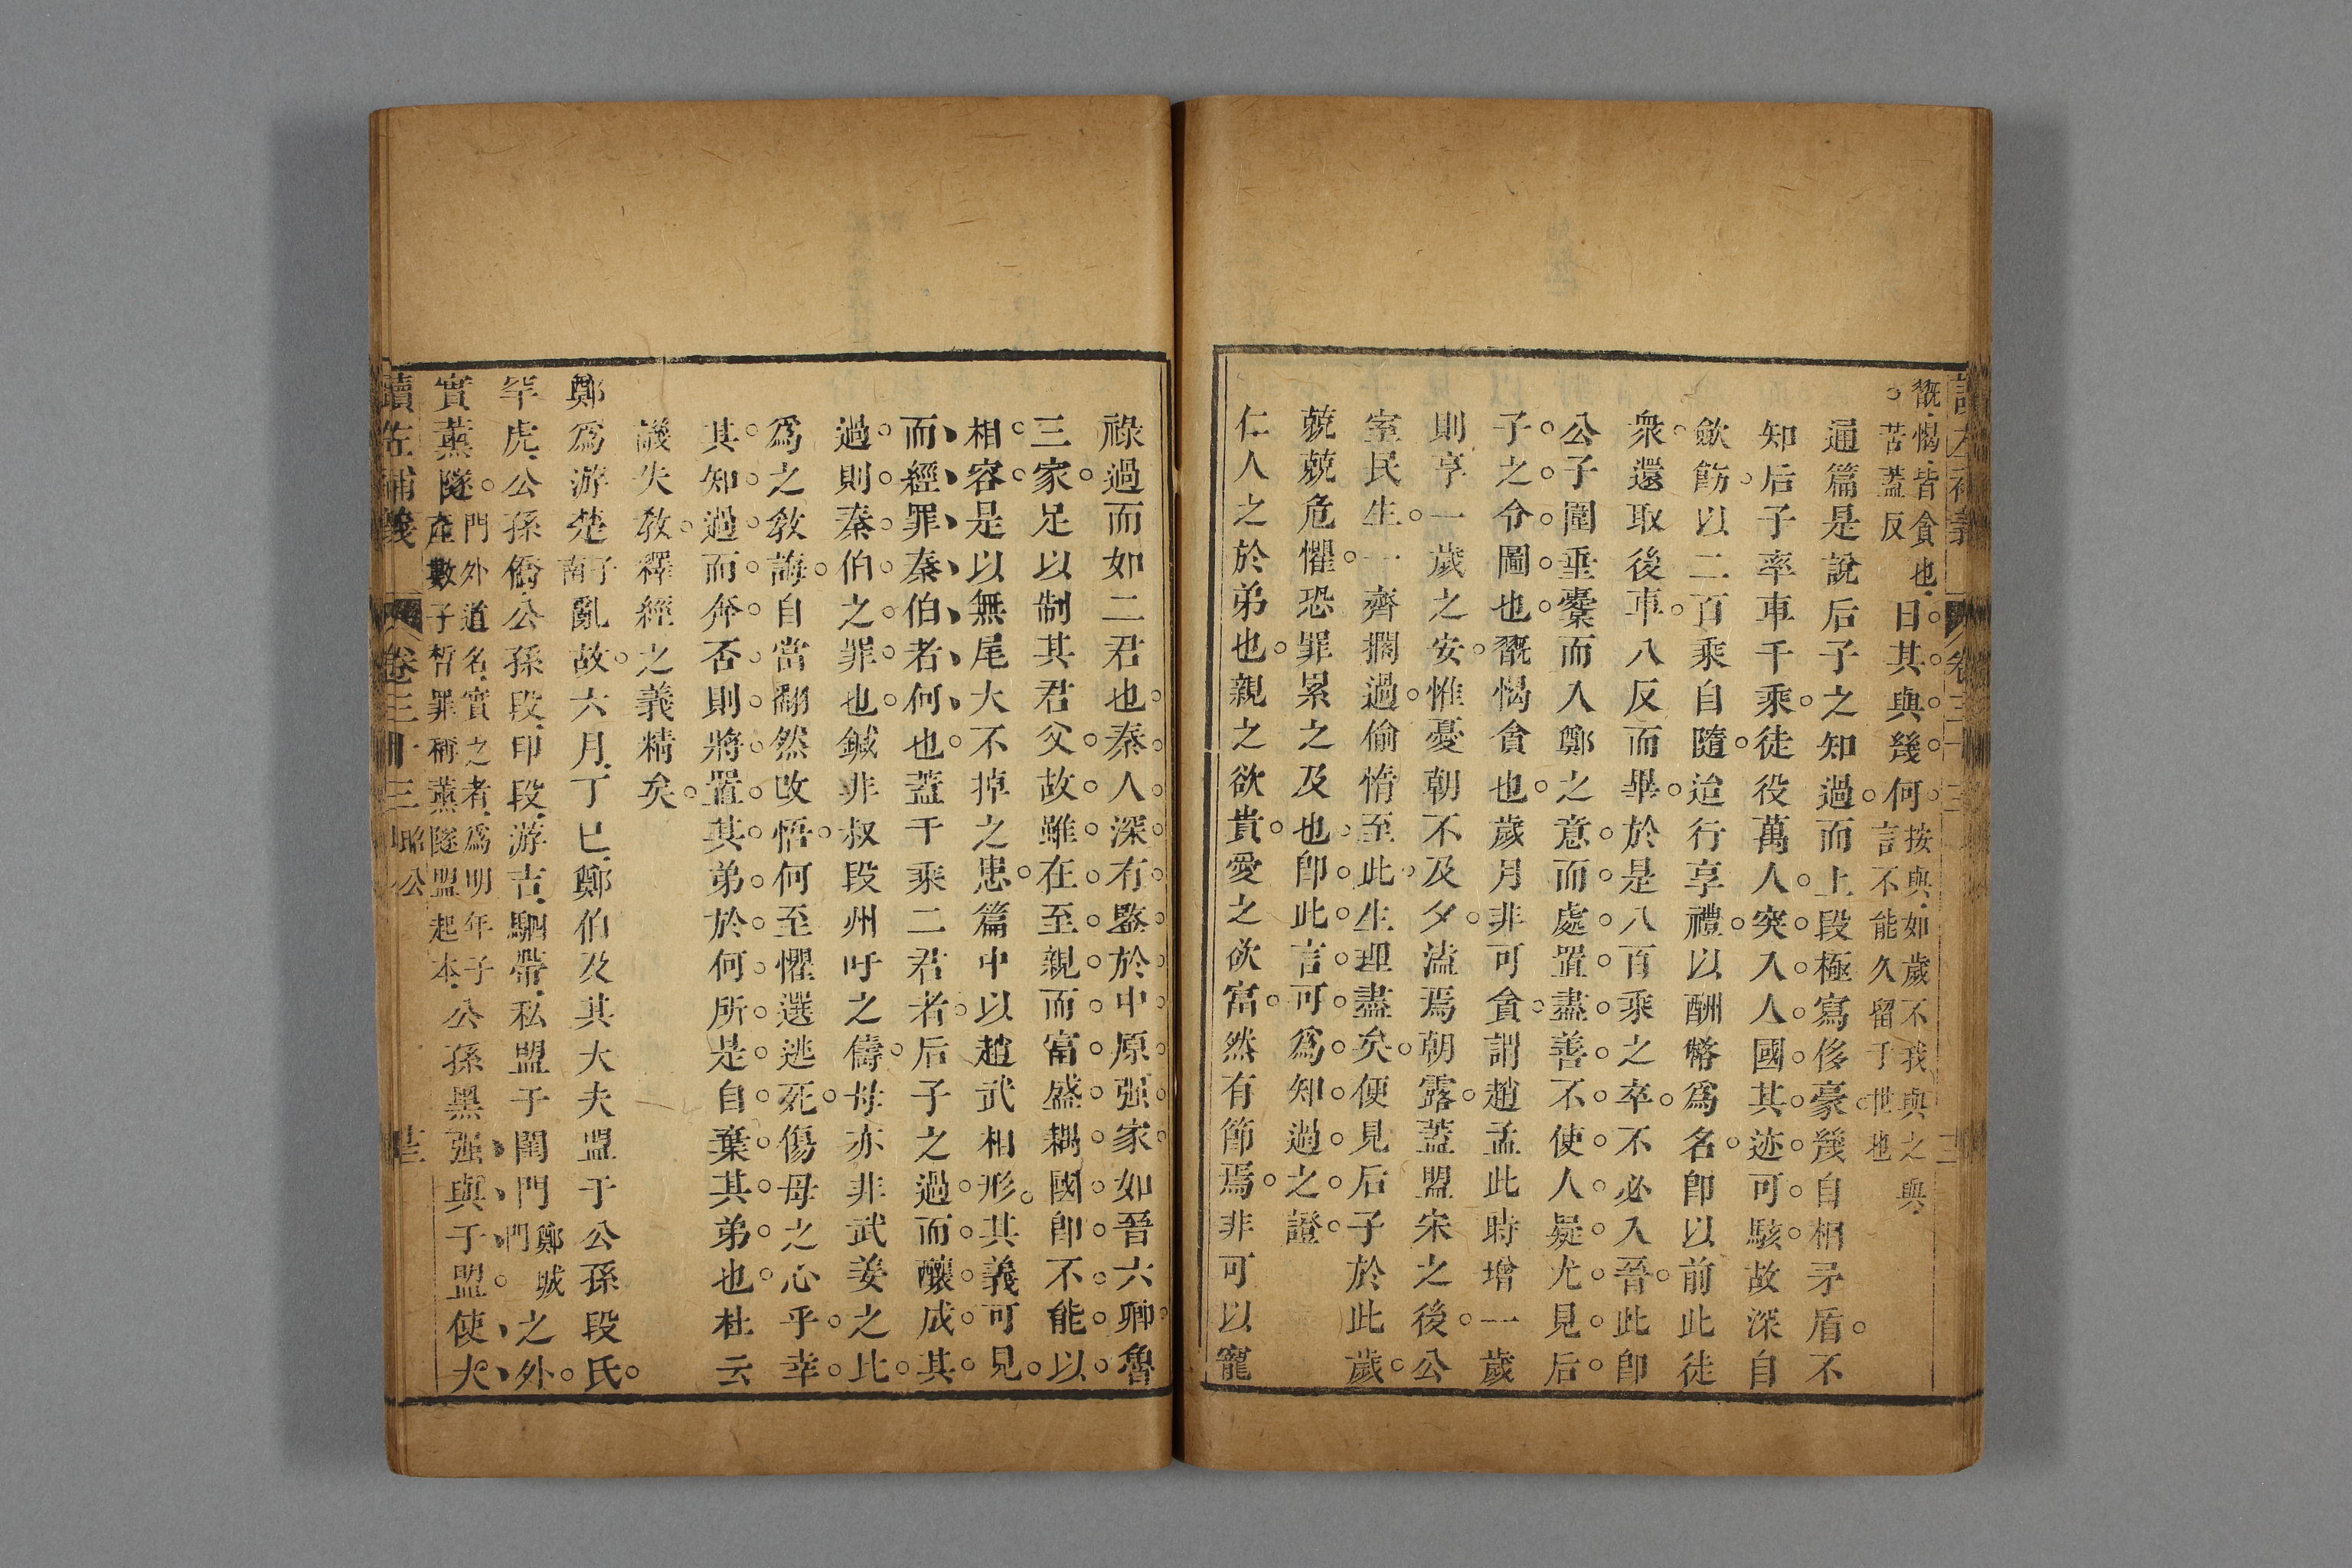 翫愒皆貪也
苦蓋反
曰其與幾何
按與如歲不我與之與
言不能久留于世也
通篇是說后子之知過而上段極寫侈豪幾自相矛盾不
知后子率車千乘徒役萬人突入人國其迹可駭故深自
歛飭以二百乘自隨迨行享禮以酬幣爲名卽以前此徒
衆還取後車八反而畢於是八百乘之卒不必入晉此卽
公子圍垂櫜而入鄭之意而處置盡善不使人疑尤見后
子之令圖也翫愒貪也歲月非可貪謂趙孟此時增一歲
則享一歲之安惟憂朝不及夕溘焉朝露蓋盟宋之後公
室民生一齊擱過偷惰至此生理盡矣便見后子於此歲
兢兢危懼恐罪累之及也卽此言可爲知過之證
仁人之於弟也親之欲貴愛之欲富然有節焉非可以寵
祿過而如二君也秦人深有鑒於中原强家如晉六卿魯
三家足以制其君父故雖在至親而富盛耦國卽不能以
相容是以無尾大不掉之患篇中以趙武相形其義可見
而經罪秦伯者何也蓋千乘二君者后子之過而釀成其
過則秦伯之罪也鍼非叔段州吁之儔母亦非武姜之比
爲之教誨自當翻然改悟何至懼選逃死傷母之心乎幸
其知過而奔否則將置其弟於何所是自棄其弟也杜云
譏失教釋經之義精矣
鄭爲游楚
子
南
亂故六月丁巳鄭伯及其大夫盟于公孫段氏
罕虎公孫僑公孫段印段游吉駟帶私盟于閨門
鄭城
門
之外
實薰隧
門外道名實之者爲明年子
產數子晳罪稱薰隧盟起本
公孫黑强與于盟使大
讀左補義
卷三十三 昭公